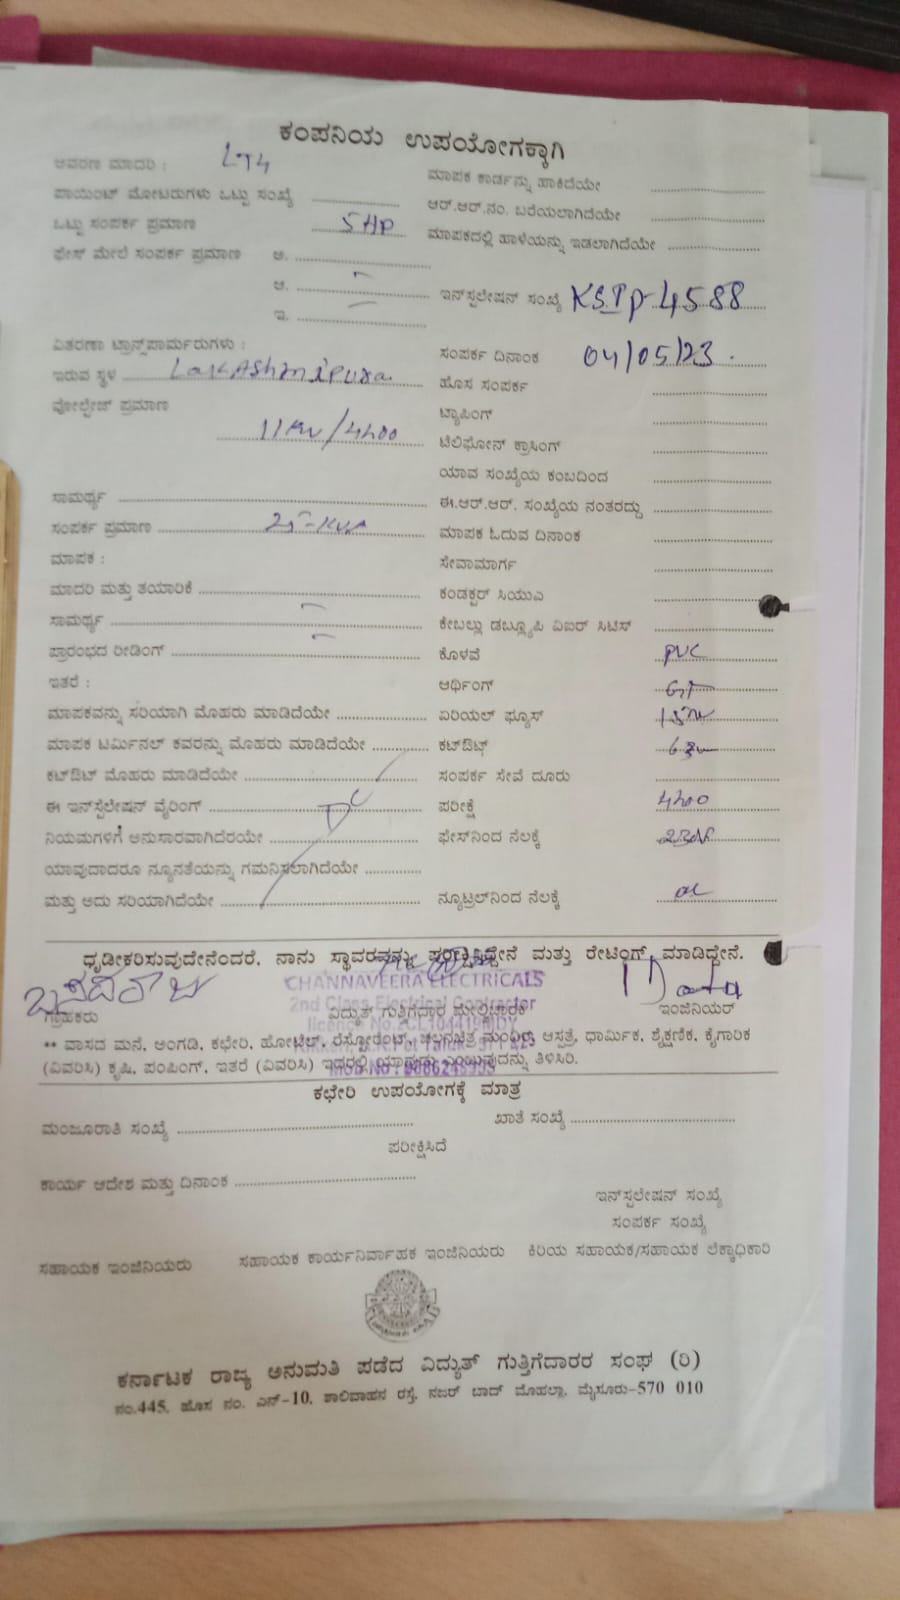 ಕಂಪನಿಯ ಉಪಯೋಗಕ್ಕಾಗಿ
ಆವರಣ ಮಾದರಿ : LT4
ಮಾಪಕ ಕಾರ್ಡನ್ನು ಹಾಕಿದೆಯೇ
ಪಾಯಿಂಟ್ ಮೋಟರುಗಳು ಒಟ್ಟು ಸಂಖ್ಯೆ
ಆರ್.ಆರ್.ನಂ. ಬರೆಯಲಾಗಿದೆಯೇ
ಒಟ್ಟು ಸಂಪರ್ಕ ಪ್ರಮಾಣ 5HP
ಮಾಪಕದಲ್ಲಿ ಹಾಳೆಯನ್ನು ಇಡಲಾಗಿದೆಯೇ
ಫೇಸ್ ಮೇಲೆ ಸಂಪರ್ಕ ಪ್ರಮಾಣ ಅ.
ಆ.
ಇನ್‌ಸ್ಟಲೇಷನ್ ಸಂಖ್ಯೆ KSTP-4588
ಇ.
ವಿತರಣಾ ಟ್ರಾನ್ಸ್‌ಪಾರ್ಮರುಗಳು :
ಸಂಪರ್ಕ ದಿನಾಂಕ 04/05/23.
ಇರುವ ಸ್ಥಳ LakAShmipura
ಹೊಸ ಸಂಪರ್ಕ
ವೋಲ್ಟೇಜ್ ಪ್ರಮಾಣ
ಟ್ಯಾಪಿಂಗ್
11KV/4400
ಟೆಲಿಫೋನ್ ಕ್ರಾಸಿಂಗ್
ಯಾವ ಸಂಖ್ಯೆಯ ಕಂಬದಿಂದ
ಸಾಮರ್ಥ್ಯ
ಈ.ಆರ್.ಆರ್. ಸಂಖ್ಯೆಯ ನಂತರದ್ದು
ಸಂಪರ್ಕ ಪ್ರಮಾಣ 25-KVA
ಮಾಪಕ ಓದುವ ದಿನಾಂಕ
ಮಾಪಕ :
ಸೇವಾಮಾರ್ಗ
ಮಾದರಿ ಮತ್ತು ತಯಾರಿಕೆ
ಕಂಡಕ್ಟರ್ ಸಿಯುಎ
ಸಾಮರ್ಥ್ಯ
ಕೇಬಲ್ಲು ಡಬ್ಲ್ಯೂಪಿ ವಿಐರ್ ಸಿಟಿಸ್
ಪ್ರಾರಂಭದ ರೀಡಿಂಗ್
ಕೊಳವೆ PVC
ಇತರೆ :
ಆರ್ಥಿಂಗ್ GI
ಮಾಪಕವನ್ನು ಸರಿಯಾಗಿ ಮೊಹರು ಮಾಡಿದೆಯೇ
ಏರಿಯಲ್ ಫ್ಯೂಸ್
ಮಾಪಕ ಟರ್ಮಿನಲ್ ಕವರನ್ನು ಮೊಹರು ಮಾಡಿದೆಯೇ
ಕಟ್‌ಔಟ್
ಕಟ್‌ಔಟ್ ಮೊಹರು ಮಾಡಿದೆಯೇ
ಸಂಪರ್ಕ ಸೇವೆ ದೂರು
ಈ ಇನ್‌ಸ್ಟಲೇಷನ್ ವೈರಿಂಗ್
ಪರೀಕ್ಷೆ 4400
ನಿಯಮಗಳಿಗೆ ಅನುಸಾರವಾಗಿದೆರಯೇ
ಫೇಸ್‌ನಿಂದ ನೆಲಕ್ಕೆ
ಯಾವುದಾದರೂ ನ್ಯೂನತೆಯನ್ನು ಗಮನಿಸಲಾಗಿದೆಯೇ
ಮತ್ತು ಅದು ಸರಿಯಾಗಿದೆಯೇ
ನ್ಯೂಟ್ರಲ್‌ನಿಂದ ನೆಲಕ್ಕೆ
ಧೃಡೀಕರಿಸುವುದೇನೆಂದರೆ, ನಾನು ಸ್ಥಾವರವನ್ನು ಪರೀಕ್ಷಿಸಿದ್ದೇನೆ ಮತ್ತು ರೇಟಿಂಗ್ ಮಾಡಿದ್ದೇನೆ.
CHANNAVEERA ELECTRICALS
2nd Class Electrical Contractor
ಬಸವರಾಜು
ಗ್ರಾಹಕರು ವಿದ್ಯುತ್ ಗುತ್ತಿಗೆದಾರ ಮೇಲ್ವಿಚಾರಕ ಇಂಜಿನಿಯರ್
** ವಾಸದ ಮನೆ, ಅಂಗಡಿ, ಕಛೇರಿ, ಹೋಟೆಲ್, ರೆಸ್ಟೋರೆಂಟ್, ಚಲನಚಿತ್ರ ಮಂದಿರ, ಆಸ್ಪತ್ರೆ, ಧಾರ್ಮಿಕ, ಶೈಕ್ಷಣಿಕ, ಕೈಗಾರಿಕ
(ವಿವರಿಸಿ) ಕೃಷಿ, ಪಂಪಿಂಗ್, ಇತರೆ (ವಿವರಿಸಿ) ಇದರಲ್ಲಿ ಯಾವುದು ಎಂಬುವುದನ್ನು ತಿಳಿಸಿರಿ.
ಕಛೇರಿ ಉಪಯೋಗಕ್ಕೆ ಮಾತ್ರ
ಮಂಜೂರಾತಿ ಸಂಖ್ಯೆ
ಖಾತೆ ಸಂಖ್ಯೆ
ಪರೀಕ್ಷಿಸಿದೆ
ಕಾರ್ಯ ಆದೇಶ ಮತ್ತು ದಿನಾಂಕ
ಇನ್‌ಸ್ಟಲೇಷನ್ ಸಂಖ್ಯೆ
ಸಂಪರ್ಕ ಸಂಖ್ಯೆ
ಸಹಾಯಕ ಇಂಜಿನಿಯರು ಸಹಾಯಕ ಕಾರ್ಯನಿರ್ವಾಹಕ ಇಂಜಿನಿಯರು ಕಿರಿಯ ಸಹಾಯಕ/ಸಹಾಯಕ ಲೆಕ್ಕಾಧಿಕಾರಿ
ಕರ್ನಾಟಕ ರಾಜ್ಯ ಅನುಮತಿ ಪಡೆದ ವಿದ್ಯುತ್ ಗುತ್ತಿಗೆದಾರರ ಸಂಘ (ರಿ)
ನಂ.445, ಹೊಸ ನಂ. ಎನ್-10, ಶಾಲಿವಾಹನ ರಸ್ತೆ, ನಜರ್ ಬಾದ್ ಮೊಹಲ್ಲಾ, ಮೈಸೂರು-570 010